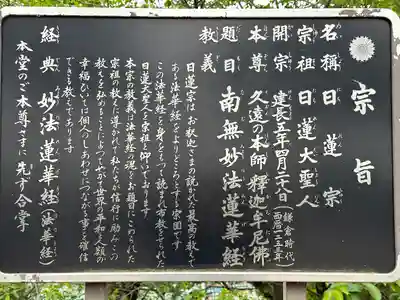 宗旨
名称 日蓮宗
宗祖 日蓮大聖人
開宗 建長五年四月二十八日(鎌倉時代 西暦一二五三年)
本尊 久遠の本師釋迦牟尼佛
題目 南無妙法蓮華経
教義
日蓮宗は、お釈迦さまの説かれた最高の教えで
ある法華経をよりどころとする宗団です
この法華経を身をもって読まれ布教をせられた
日蓮大聖人を宗祖と仰いでおります
本宗の教義は法華経の魂をお題目にこめられた
宗祖の教えに導かれて私たちが信行に励みこの
教えを弘めることによってやがて世界の平和と人類の
幸福ひいては個人のしあわせにつながる事を確信
できる教えであります
経典 妙法蓮華経(法華経)
本堂のご本尊さまに先ず合掌